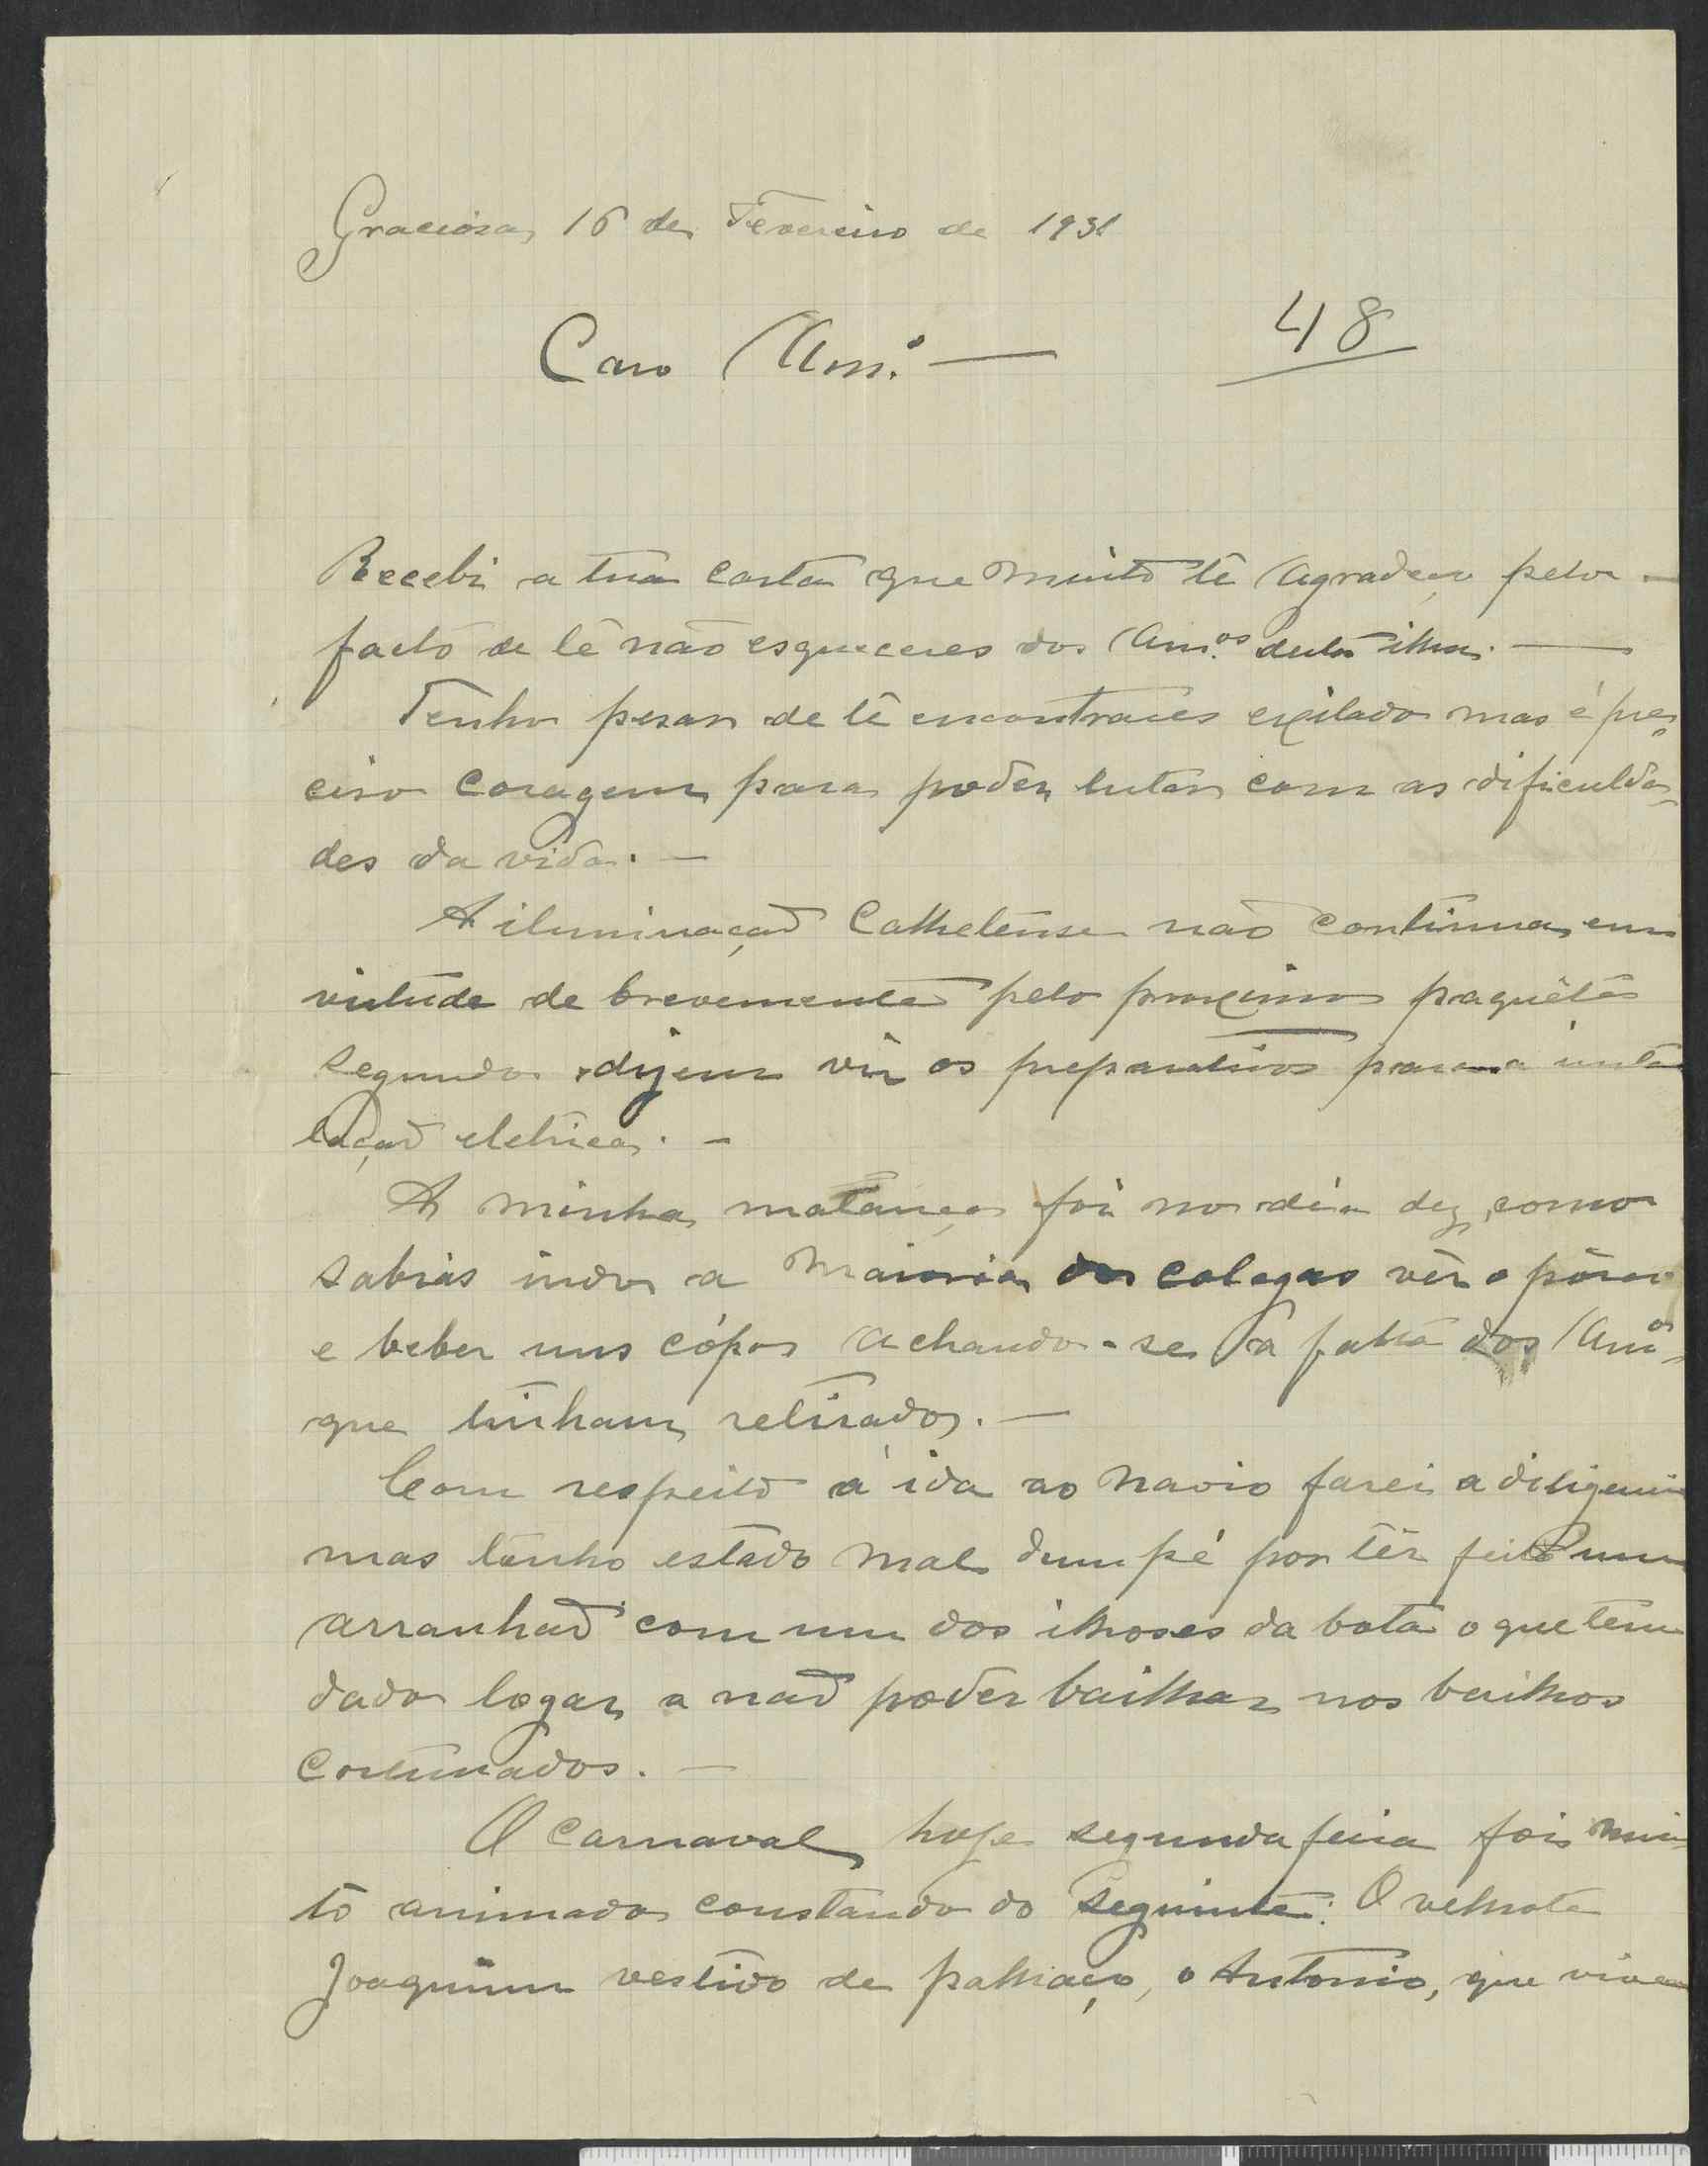 Graciosa, 16 de Fevereiro de 1931
Caro Am.º —
48
Recebi a tua carta que muito tê agradeço pelo
facto de tê não esqueceres dos Am.ºs desta ilha. —
Tenho pesar de tê encontrares exilado mas é pre-
ciso coragem para poder lutar com as dificulda-
des da vida. —
A iluminação não continua em
virtude de brevemente pelo proximo paquête
segundo dizem vir os preparativos para a insta
lação eletrica. —
A minha matança foi no dia dez, como
sabias indo a maioria dos colegas vêr o pôrco
e beber uns cópos achando-se a falta dos Amºs
que tinham retirados. —
Com respeito á ida ao navio farei a diligencia
mas tenho estado mal dum pé por têr feito um
arranhão com um dos ilhoses da bota o que tem
dado logar a não poder bailhar nos bailhos
costumados. —
O carnaval hoje segunda feira foi mui
to animado constando do seguinte: O velhote
Joaquim vestido de palhaço, o Antonio, que